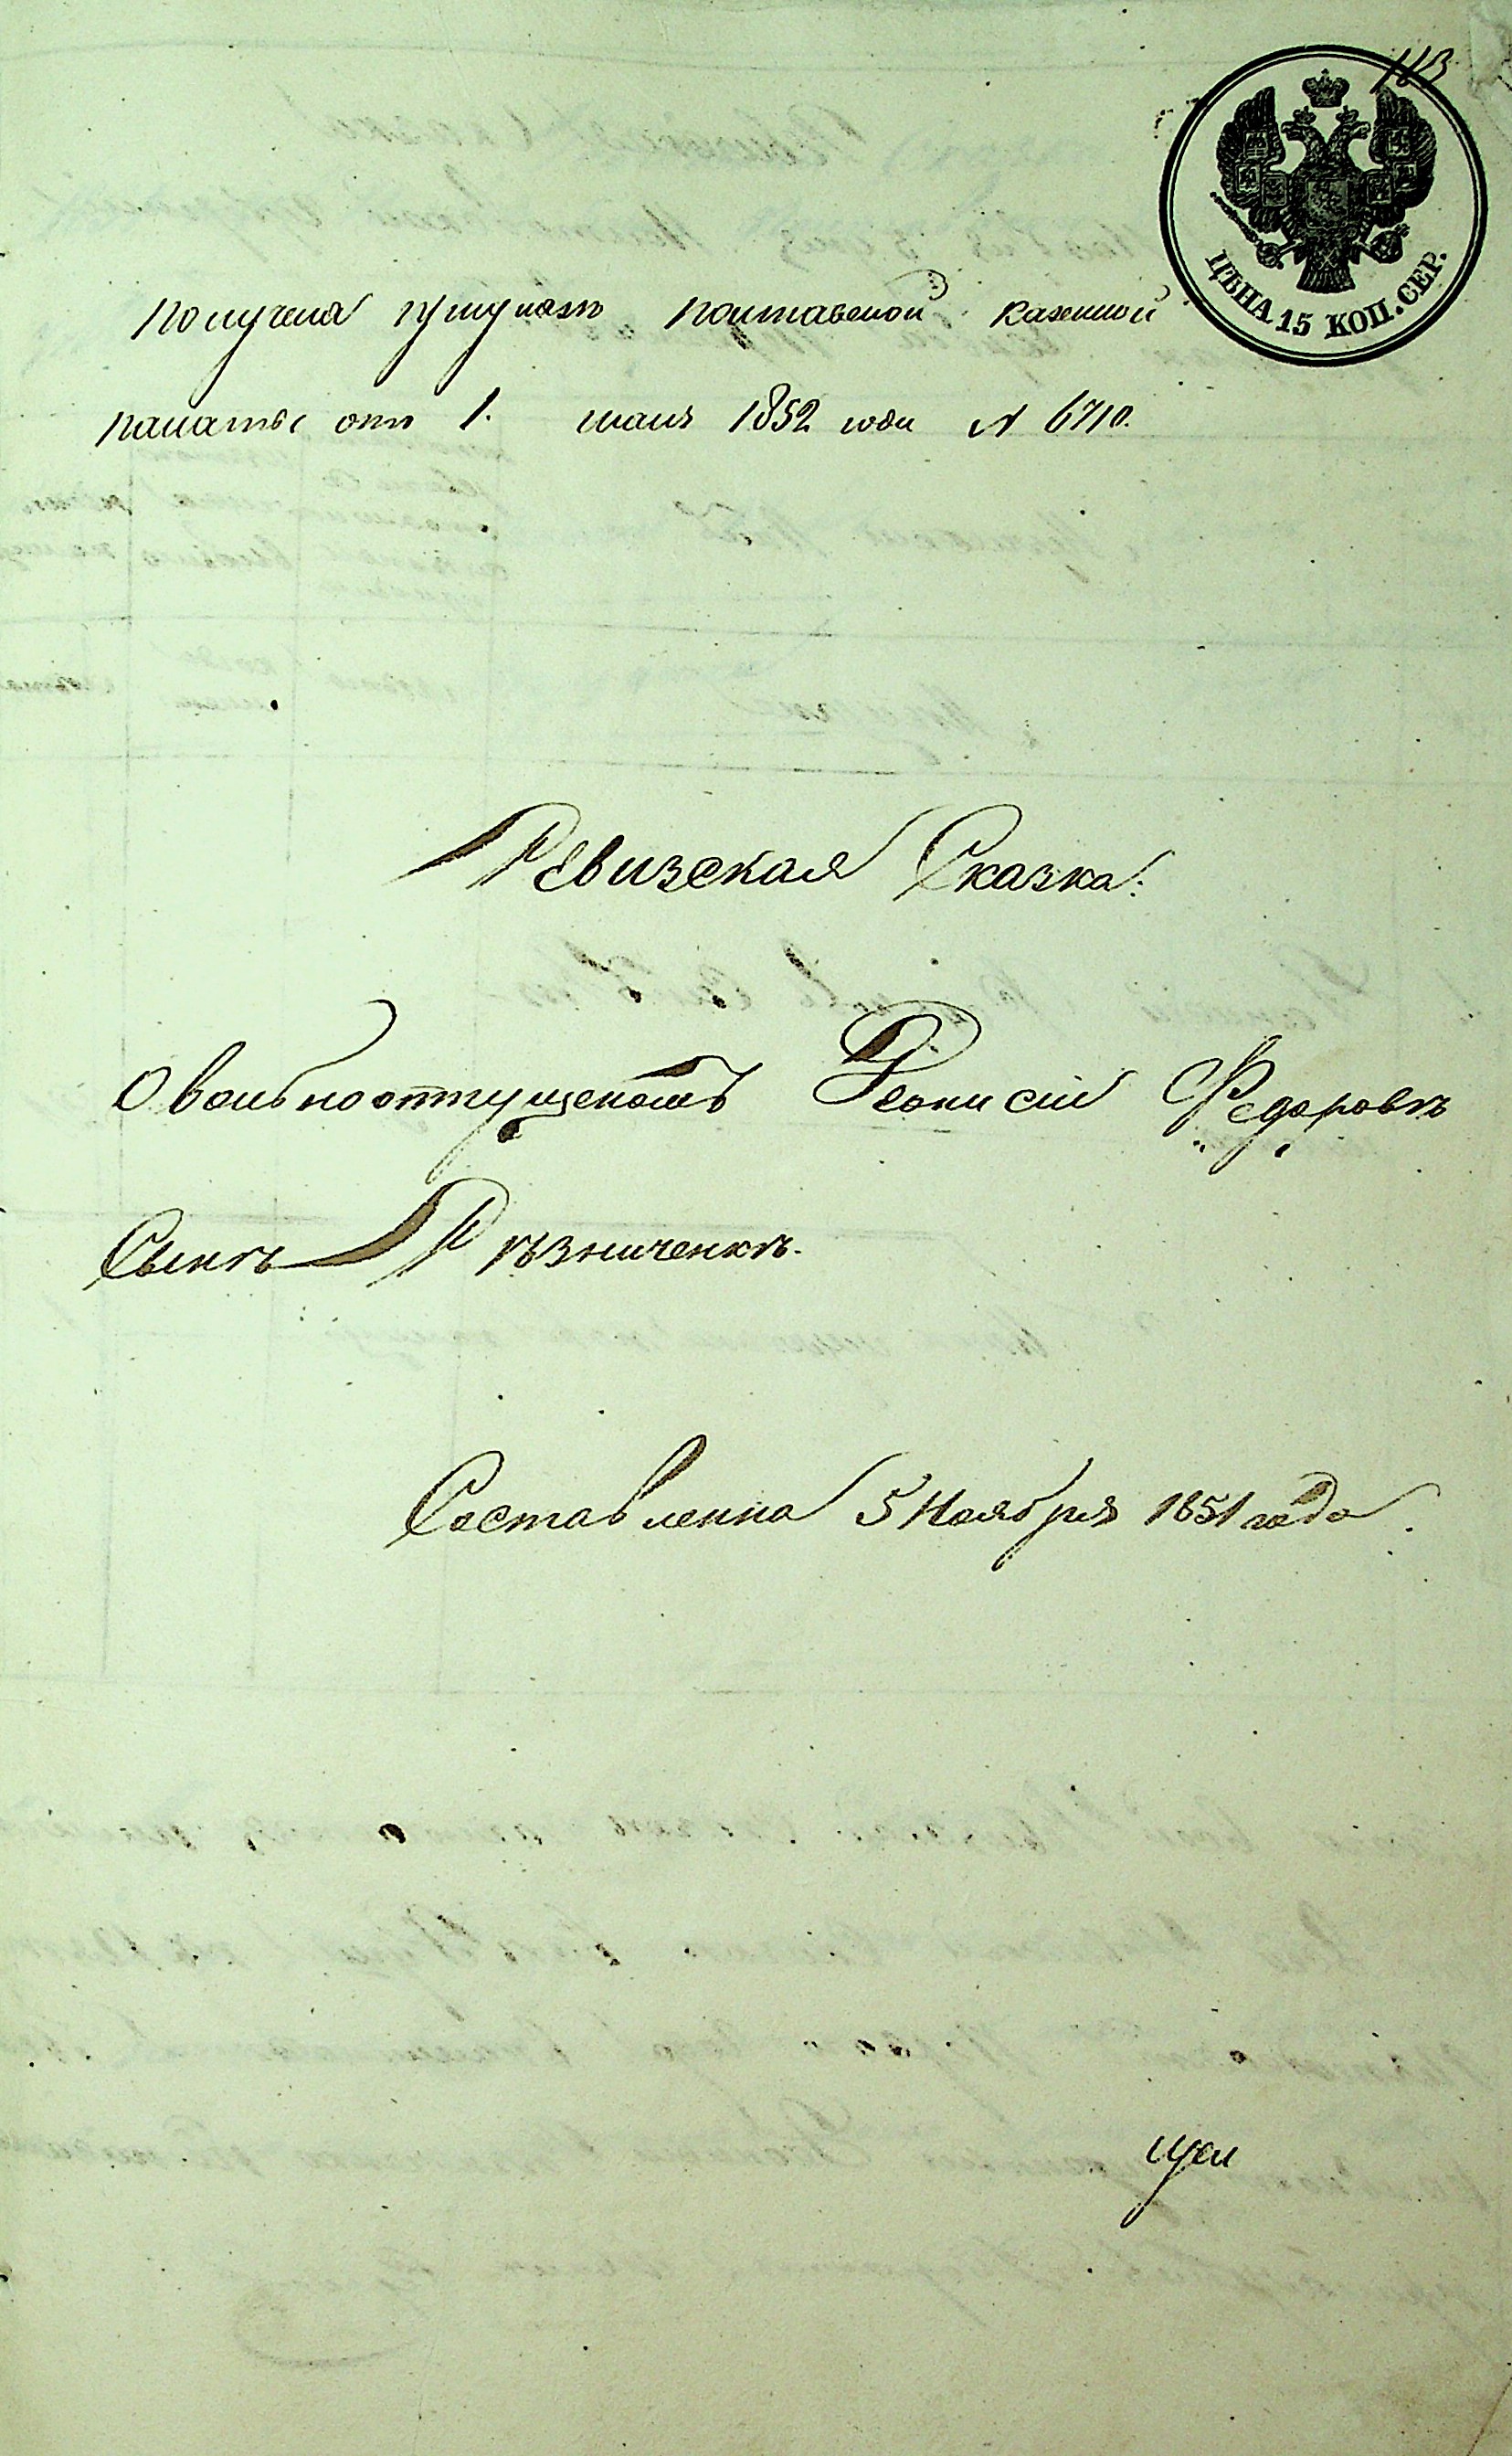 113
ЦѢНА 15 КОП. СЕР.
Получена при указѣ Полтавской казенной
палаты отъ 1. мая 1852 года № 6710.
Ревизская Сказка:
О вольноотпущеномъ Деонисiи Федоровѣ
Сынѣ Рѣзниченкѣ.
Составленна 5 Ноября 1851 года.